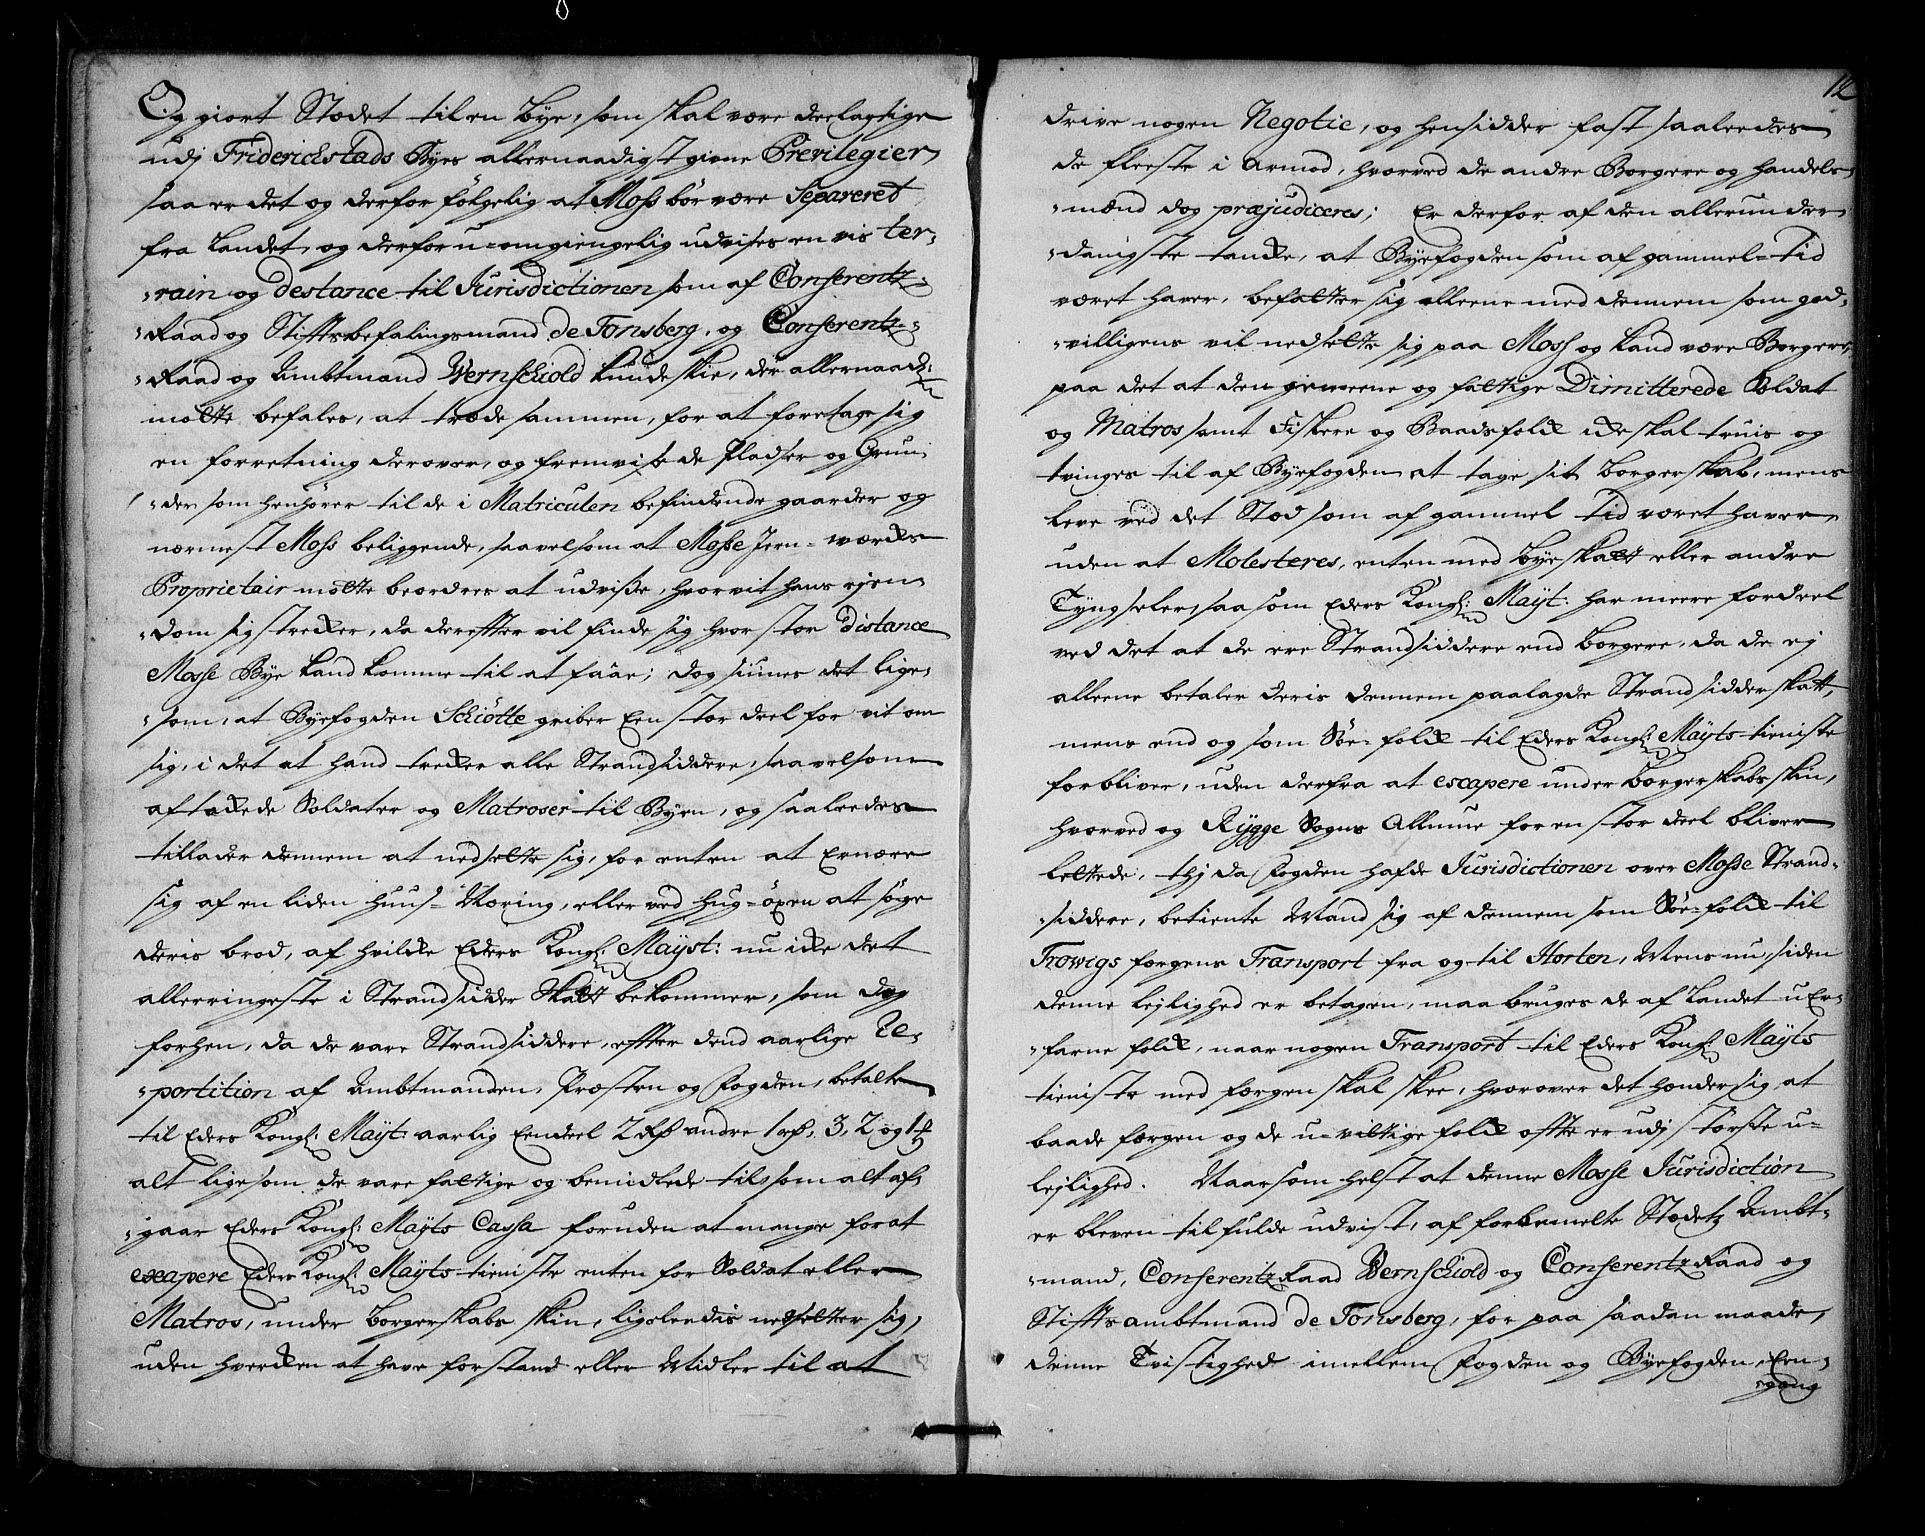 Og giort Stædet til en Bye, som skal være deelagtige
udj Friderichstads Byes allernaadigst givne Previlegier,
saa er det og derfor følgelig at Moss bør være Separeret
fra Landet, og derfor u-omgiengelig udvises en vis ter-
-rain og destance til Jurisdictionen som af Conferentz-
-Raad og Stiftsbefalingsmand de Tonsberg, og Conferentz-
-Raad og Ambtmand Wernschiold kunde skie, der allernaad:
motte befales, at træde sammen, for at foretage sig
en forretning derover, og fremvise de Pladser og Grun-
-der som henhører til de i Matriculen befindende gaarder og
nærmest Moss beliggende, saavelsom at Mosse Jern-værks
Proprietair motte beordres at udvise, hvorvit hans ejen-
-dom sig strecker, da derefter vil finde sig hvor stor Distance
Mosse Bye kand komme til at faae; dog siunes det lige-
-som, at Byefogden Schiøtte griber Een stor deel for vit om
sig, i det at hand trecker alle Strandsiddere, saavelsom
aftackede Soldater og Matroser til Byen, og saaleedes
tillader dennem at nedsette sig, for enten at Ernære
sig af en liden huus-Næring, eller ved hug-öxen at søge
deris brød, af hvilcke Eders Kongl: Mayst: nu icke det
allerringeste i Strandsidder Skatt bekommer, som dog
forhen, da de vare Strandsiddere, efter dend aarlige Re-
-partition af Ambtmanden, Præsten og Fogden, betalte
til Eders Kongl: Mayt: aarlig Eendeel 2 Rd andre 1 rd, 3, 2 og 1
alt ligesom de vare fattige og bemidlede til, som alt af-
-gaar Eders Kongl: Mayts Cassa foruden at mange for at
escapere Eders Kongl: Mayts tieniste enten for Soldat eller
Matros, under Borgerskabs skin, ligeleedis nedsetter sig,
uden hvercken at have forstand eller Midler til at
12
drive nogen Negotie, og hensidder fast saaleedes
de fleeste i Armod, hvorved de andre Borgere og handels-
-mænd dog præjudiceres; Er derfor af den allerunder-
-danigste tancke, at Byefogden som af gammel-tid
været haver, befatter sig alleene med dennem som god-
-villigens vil nedsette sig paa Moss og kand være Borgere,
paa det at den gemeene og fattige Dimitterede Soldat
og Matros samt Fiskere og Baadsfolck icke skal truis og
tvinges til af Byefogden at tage sit Borgerskab, mens
leve ved det Stæd som af gammel tid været haver,
uden at Molesteres, enten med Byeskatt eller andre
Tyngseler, saasom Eders Kongl: Mayt: har meere fordeel
ved det at de ere Strandsiddere end Borgere, da de ej
alleene betaler deris dennem paalagde Strandsidderskatt,
mens end og som Søe-folck til Eders Kongl: Mayts tieniste
forbliver, uden derfra at escapere under Borgerskabs skin,
hvorved og Rygge Sogns Allmue for en stor deel bliver
lettede, thj da Fogden hafde Jurisdictionen over Mosse Strand-
-siddere, betiente Mand sig af dennem som Søe-folck til
Frowigs færgens Transport fra og til Horten, Mens nu, siden
denne lejlighed er betagen, maa bruges de af Landet uEr-
-farne folck, naar nogen Transport til Eders Kongl: Mayts
tieniste med færgen skal skee, hvorover det hænder sig at
baade færgen og de u-vittige folck ofte er udj største u-
lejlighed. Naarsomhelst at denne Mosse Jurisdiction
er bleven tilfulde udvist, af forbemelte Stædetz Ambt-
-mand, Conferentz Raad Wernschiold og Conferentz Raad og
Stifts ambtmand de Tonsberg, for paa saadan maade,
denne Tvistighed imellem Fogden og Byefogden, Een-
-gang